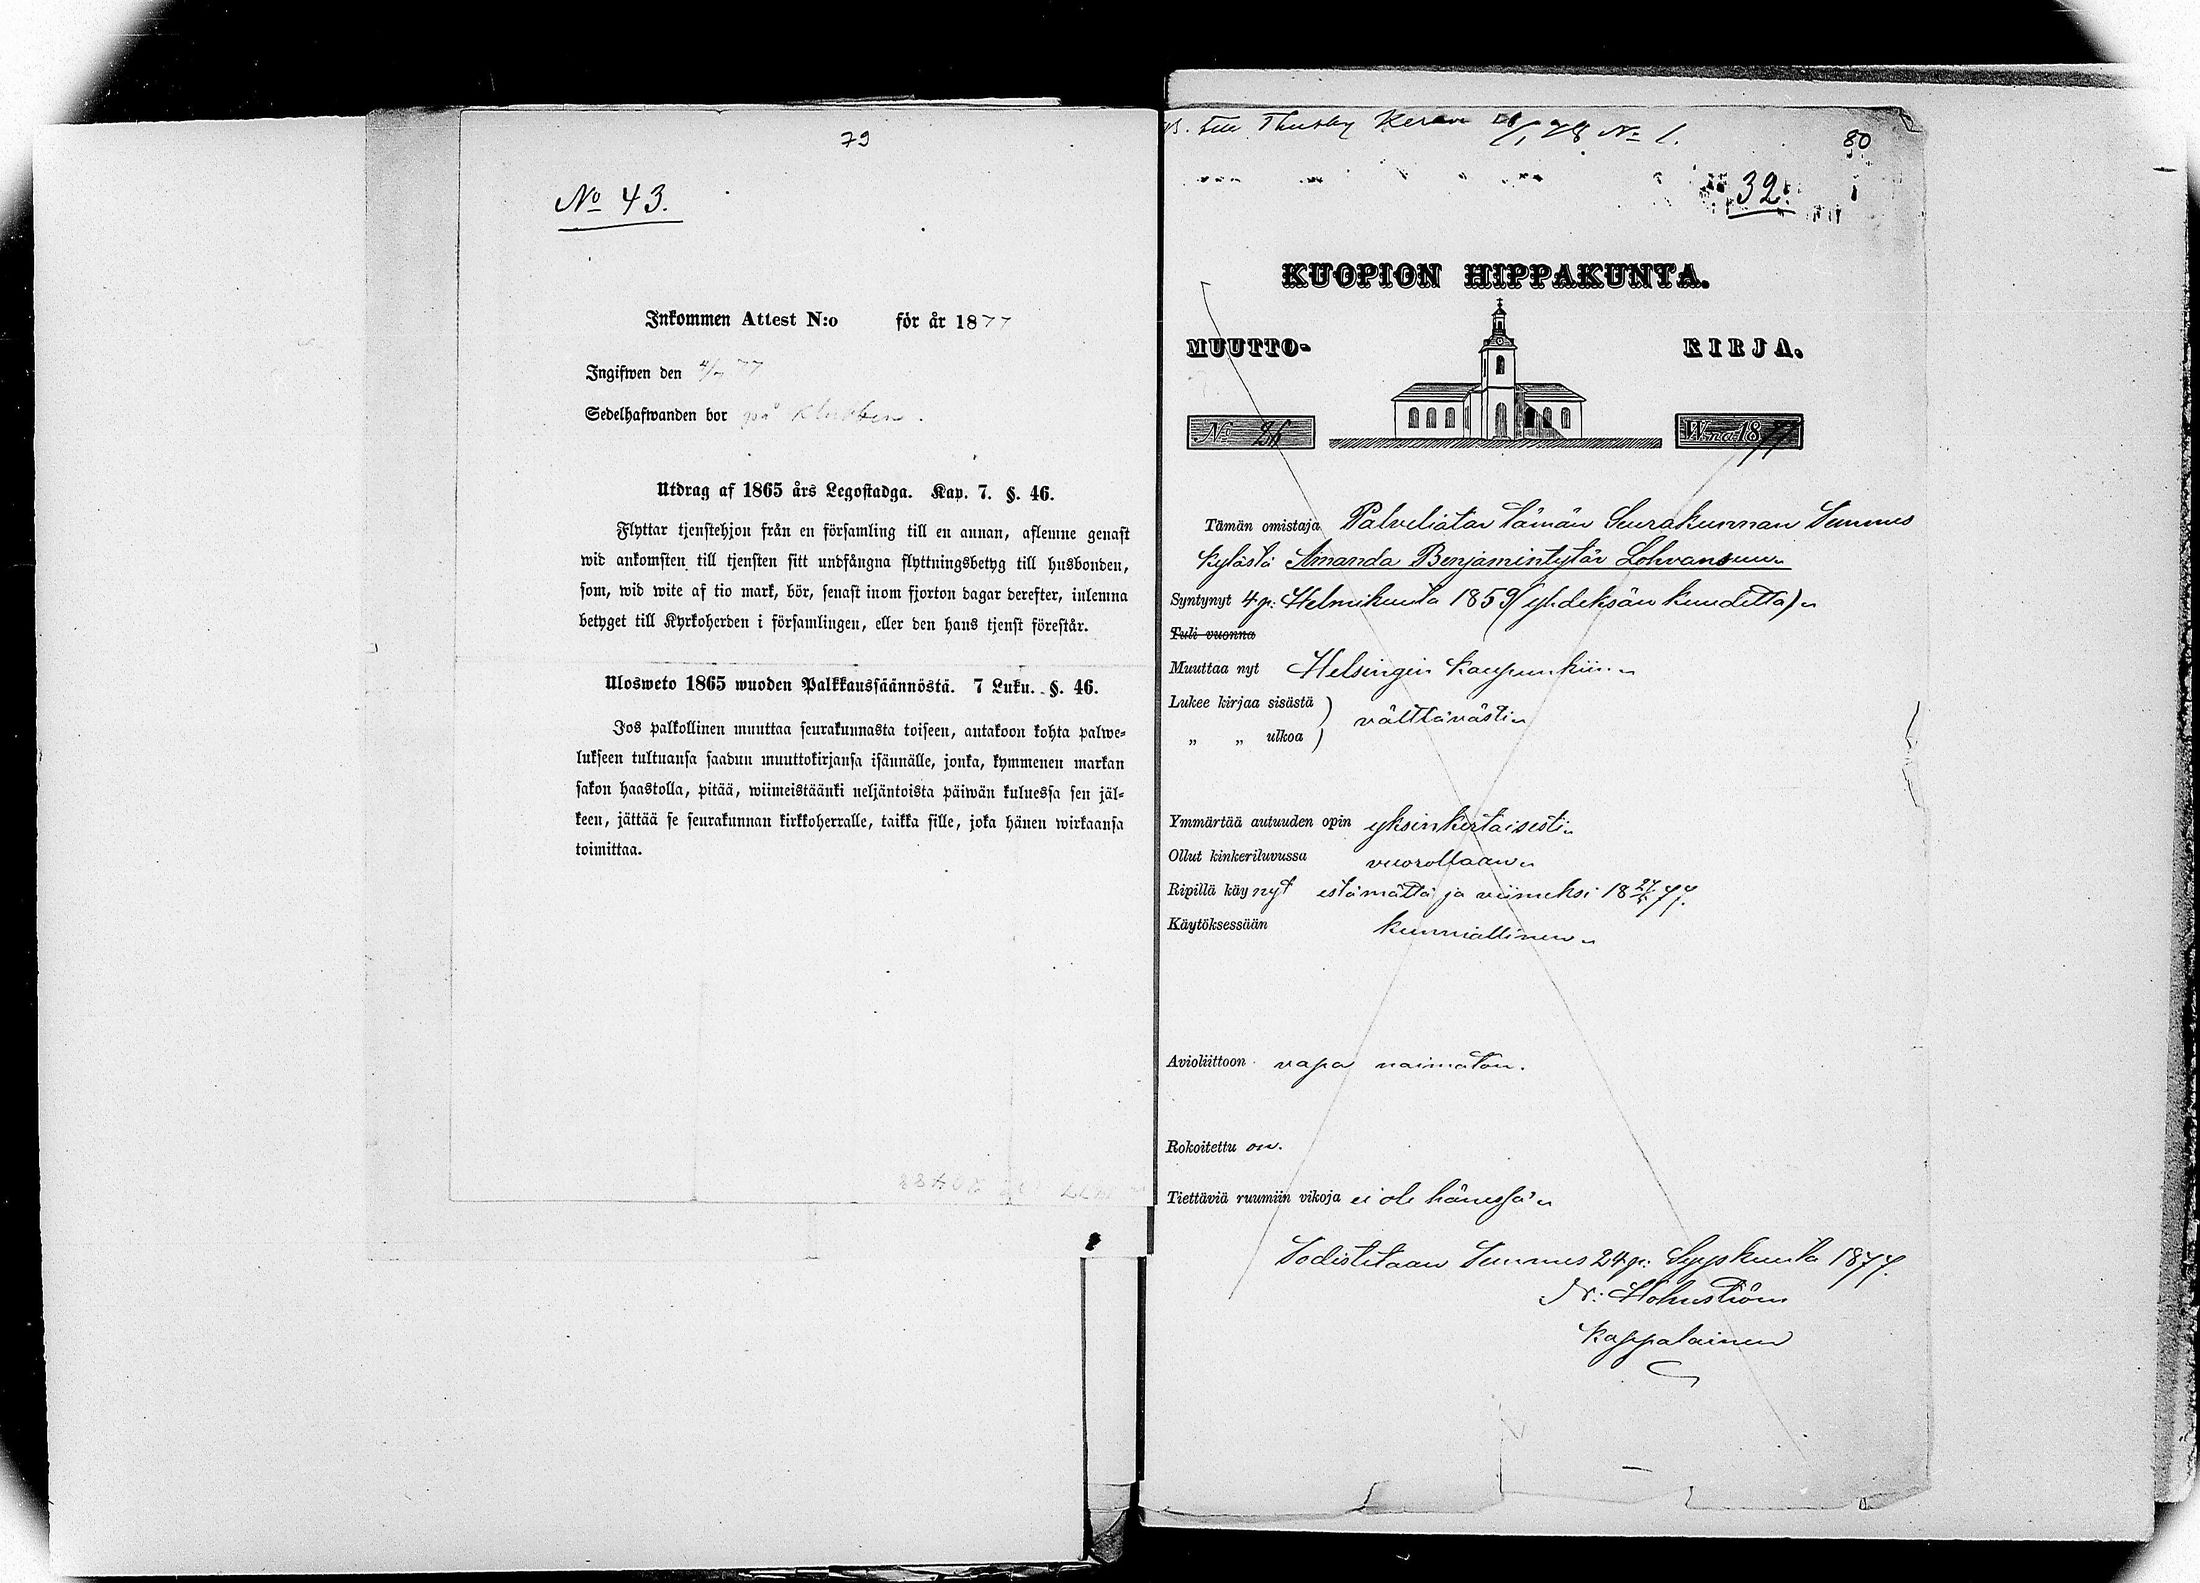 79
No 43.
Inkommen Attest N:o för år 1877
Ingifwen den
Sedelhafwanden bor på
Utdrag af 1865 års Legostadga. Kap. 7. §. 46.
Flyttar tjenstehjon från en församling till en annan, aflemne genast
wid ankomsten till tjensten sitt undfångna flyttningsbetyg till husbonden,
som, wid wite af tio mark, bör, senast inom fjorton dagar derefter, inlemna
betyget till Kyrkoherden i församlingen, eller den hans tjenst förestår.
Ulosweto 1865 wuoden Palkkaussäännöstä. 7 Luku. §. 46.
Jos palkollinen muuttaa seurakunnasta toiseen, antakoon kohta palwe-
lukseen tultuansa saadun muuttokirjansa isännälle, jonka, kymmenen markan
sakon haastolla, pitää, wiimeistäänki neljäntoista päiwän kuluessa sen jäl-
keen, jättää se seurakunnan kirkkoherralle, taikka sille, joka hänen wirkaansa
toimittaa.
till Thusby Kerava 78 No 1.
80
32.
KUOPION HIPPAKUNTA.
MUUTTO- KIRJA.
No 26 W:na 1877
Tämän omistaja Palveliatar tämän Seurakunnan
kylästä Amanda Benjamintytär Lohvansuu
Syntynyt 4 p: Helmikuuta 1859 (yhdeksän kuudetta)
Tuli vuonna
Muuttaa nyt Helsingin kaupunkiin
Lukee kirjaa sisästä
välttävästi
„ „ ulkoa
Ymmärtää autuuden opin yksinkertaisesti
Ollut kinkeriluvussa vuorollaan
Ripillä käynyt estämättä ja viimeksi 18 77.
Käytöksessään kunniallinen
Avioliittoon vapa naimaton.
Rokoitettu on.
Tiettäviä ruumiin vikoja ei ole hänessä
Todistetaan 24 p: Syyskuuta 1877.
Kappalainen